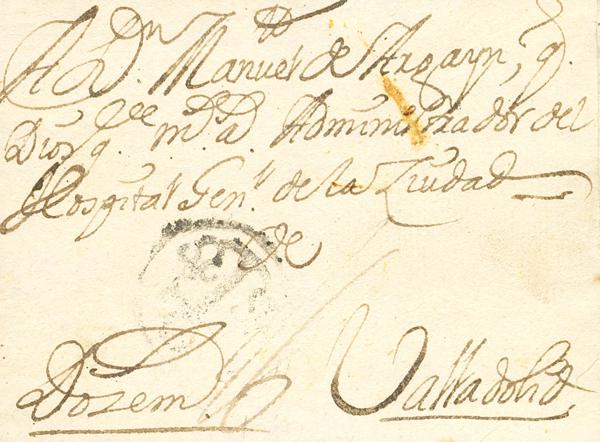 A Dn. Manuel de Argayn, q.
Dios gde. ms. as. Administrador del
Hospital Genl. de la Ziudad
de
Dozem Valladolid